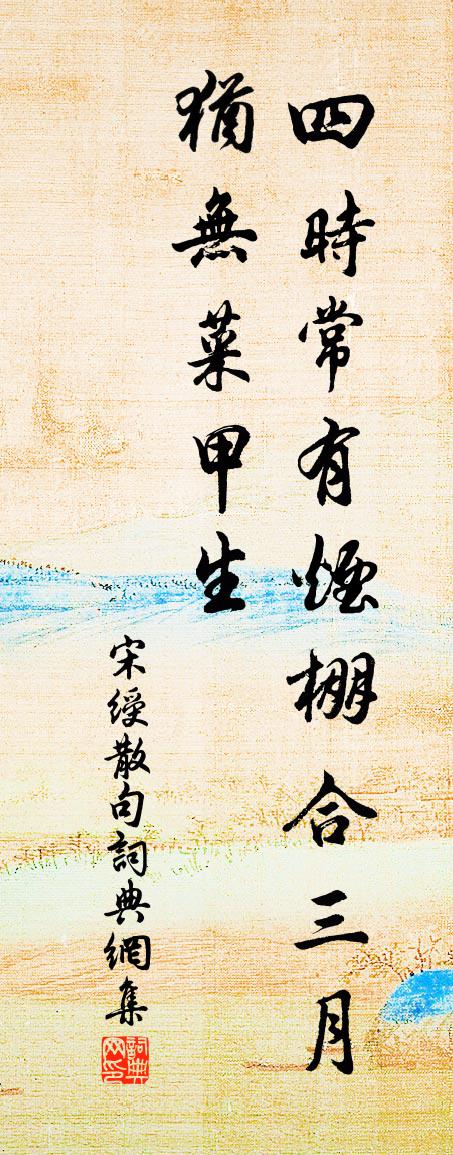 四時常有煙棚合三月
猶無菜甲生
宋綬散句詞典網集
詞典网印